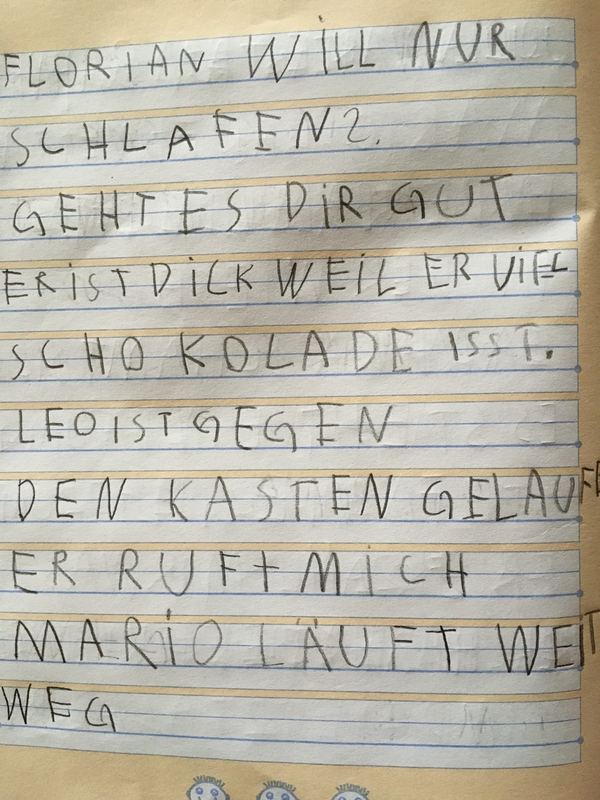 FLORIAN WiLL NUR
SCHLAFEN?.
GEHT ES DiR GUT
ER iST DiCK WEiL ER ViEL
SCHOKOLADE ISST.
LEO IST GEGEN
DEN KASTEN GELAUFE
ER RUFt MiCH
MARiO LÄUFT WEiT
WEG